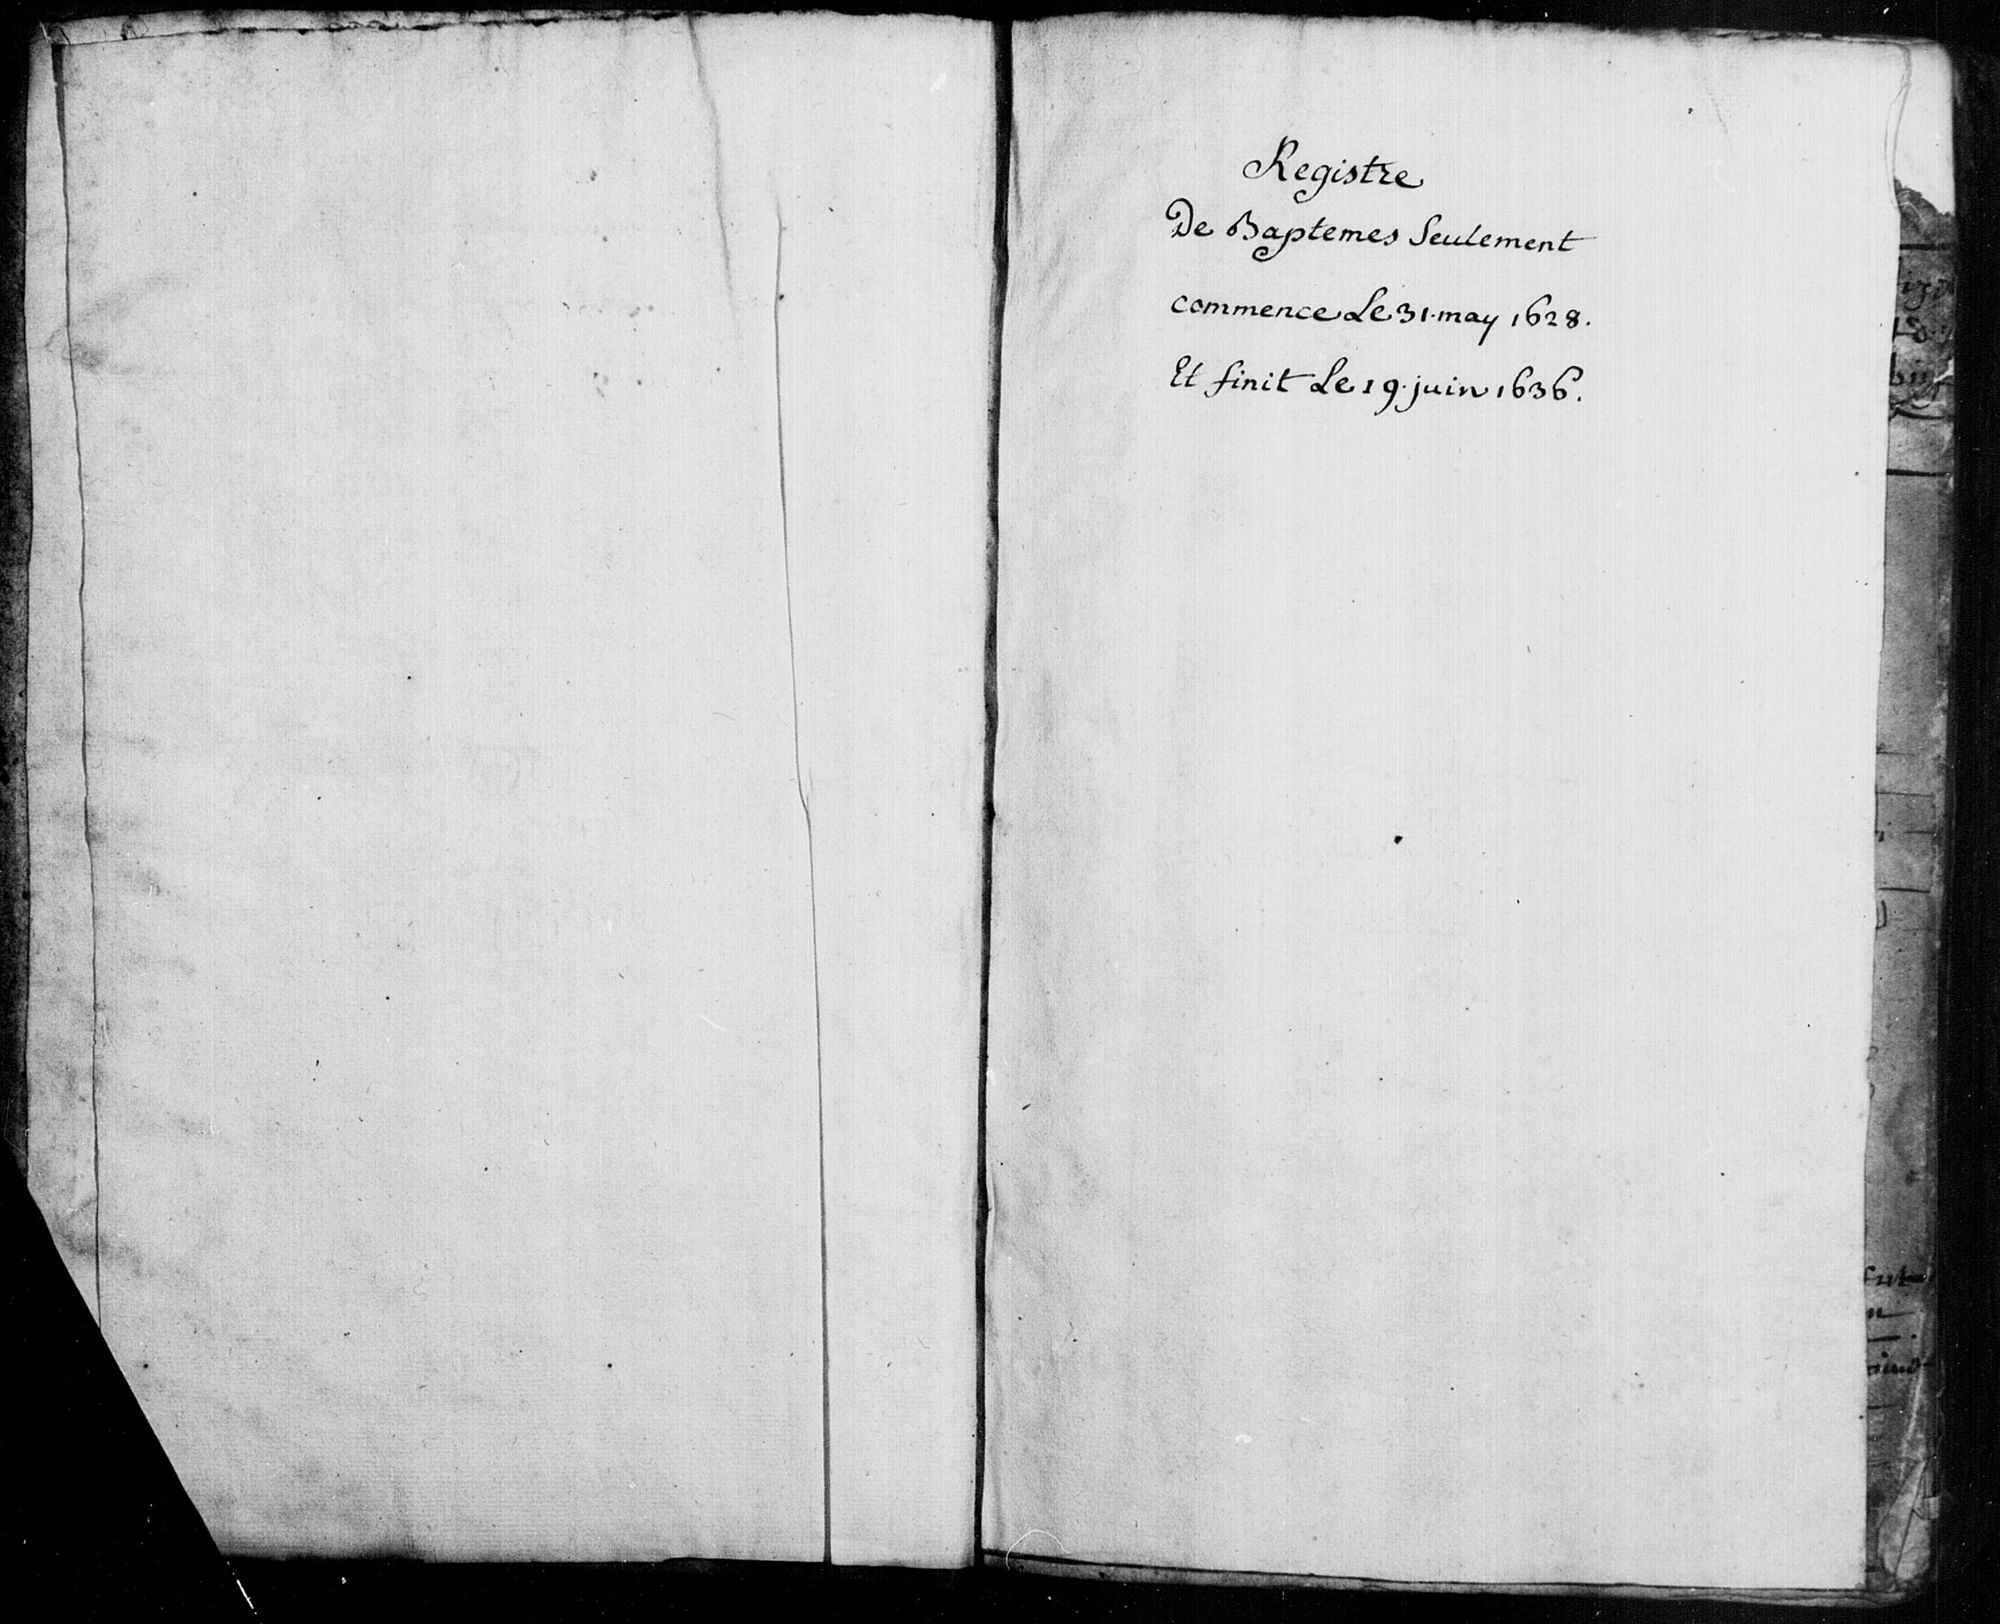 Registre
De Baptemes Seulement
commence Le 31. may 1628.
Et finit Le 19. juin 1636.